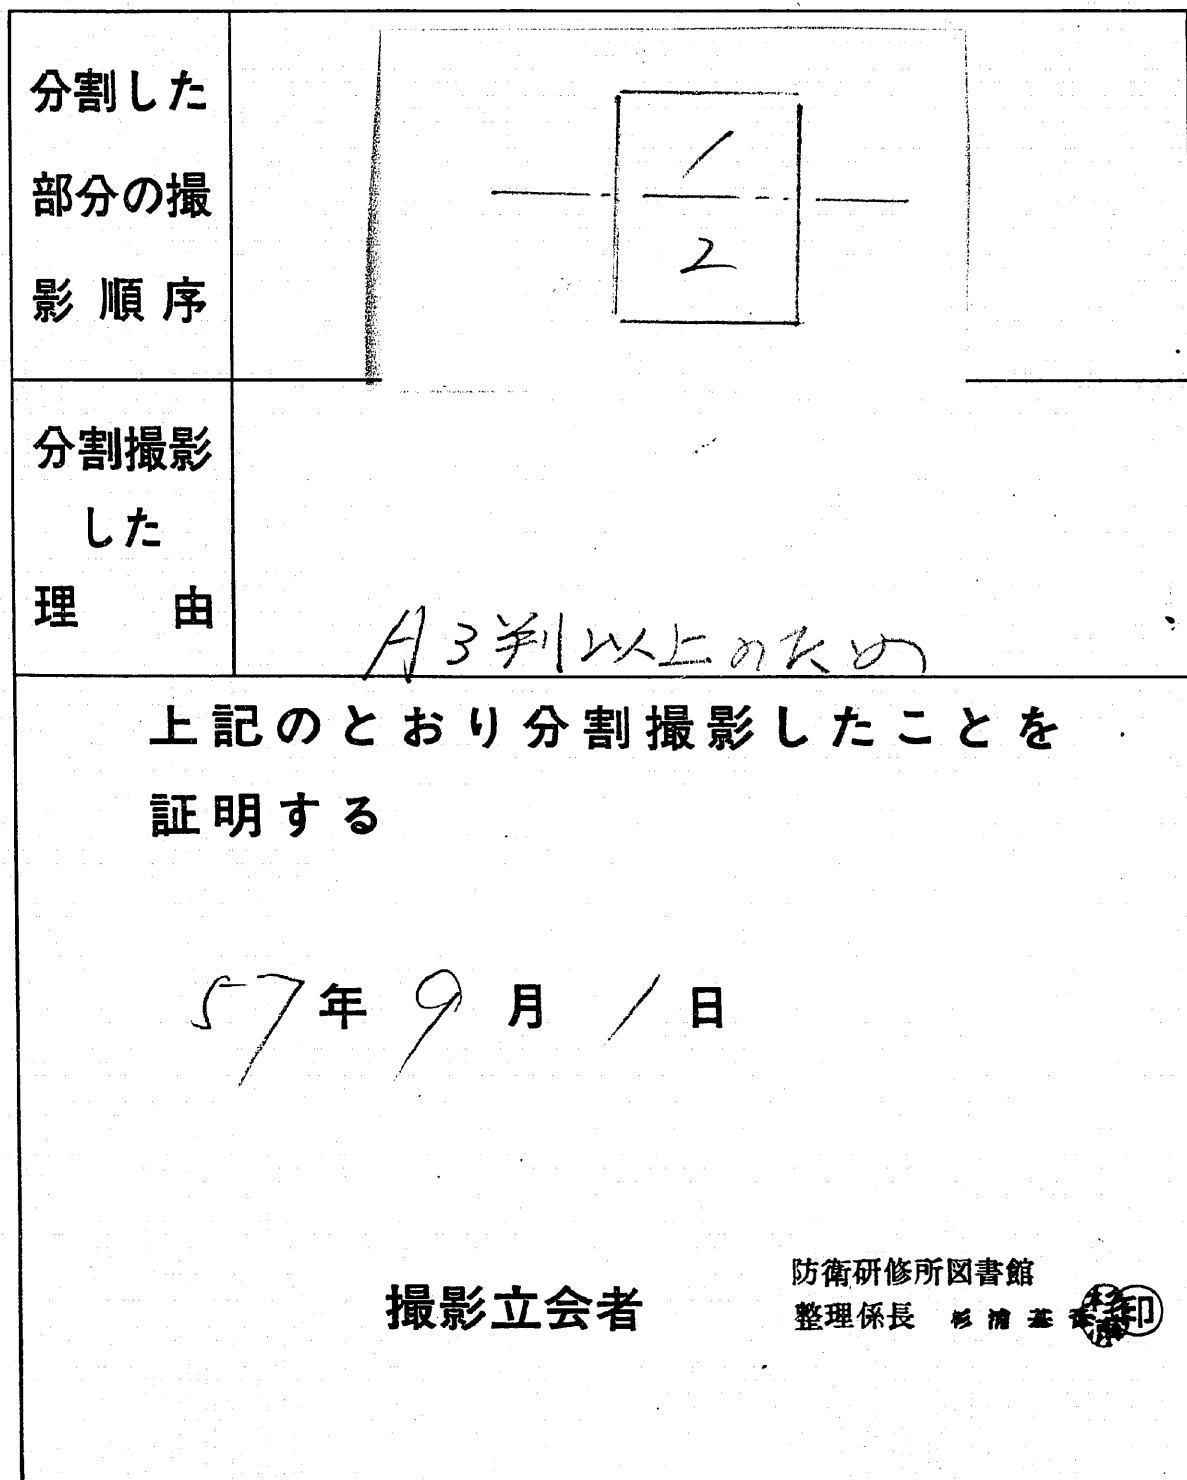 分割した
部分の撮
影順序
1
2
分割撮影
した
理由
A3判以上のため
上記のとおり分割撮影したことを
証明する
57年9月1日
防衛研修所図書館
撮影立会者
整理係長 杉浦
印